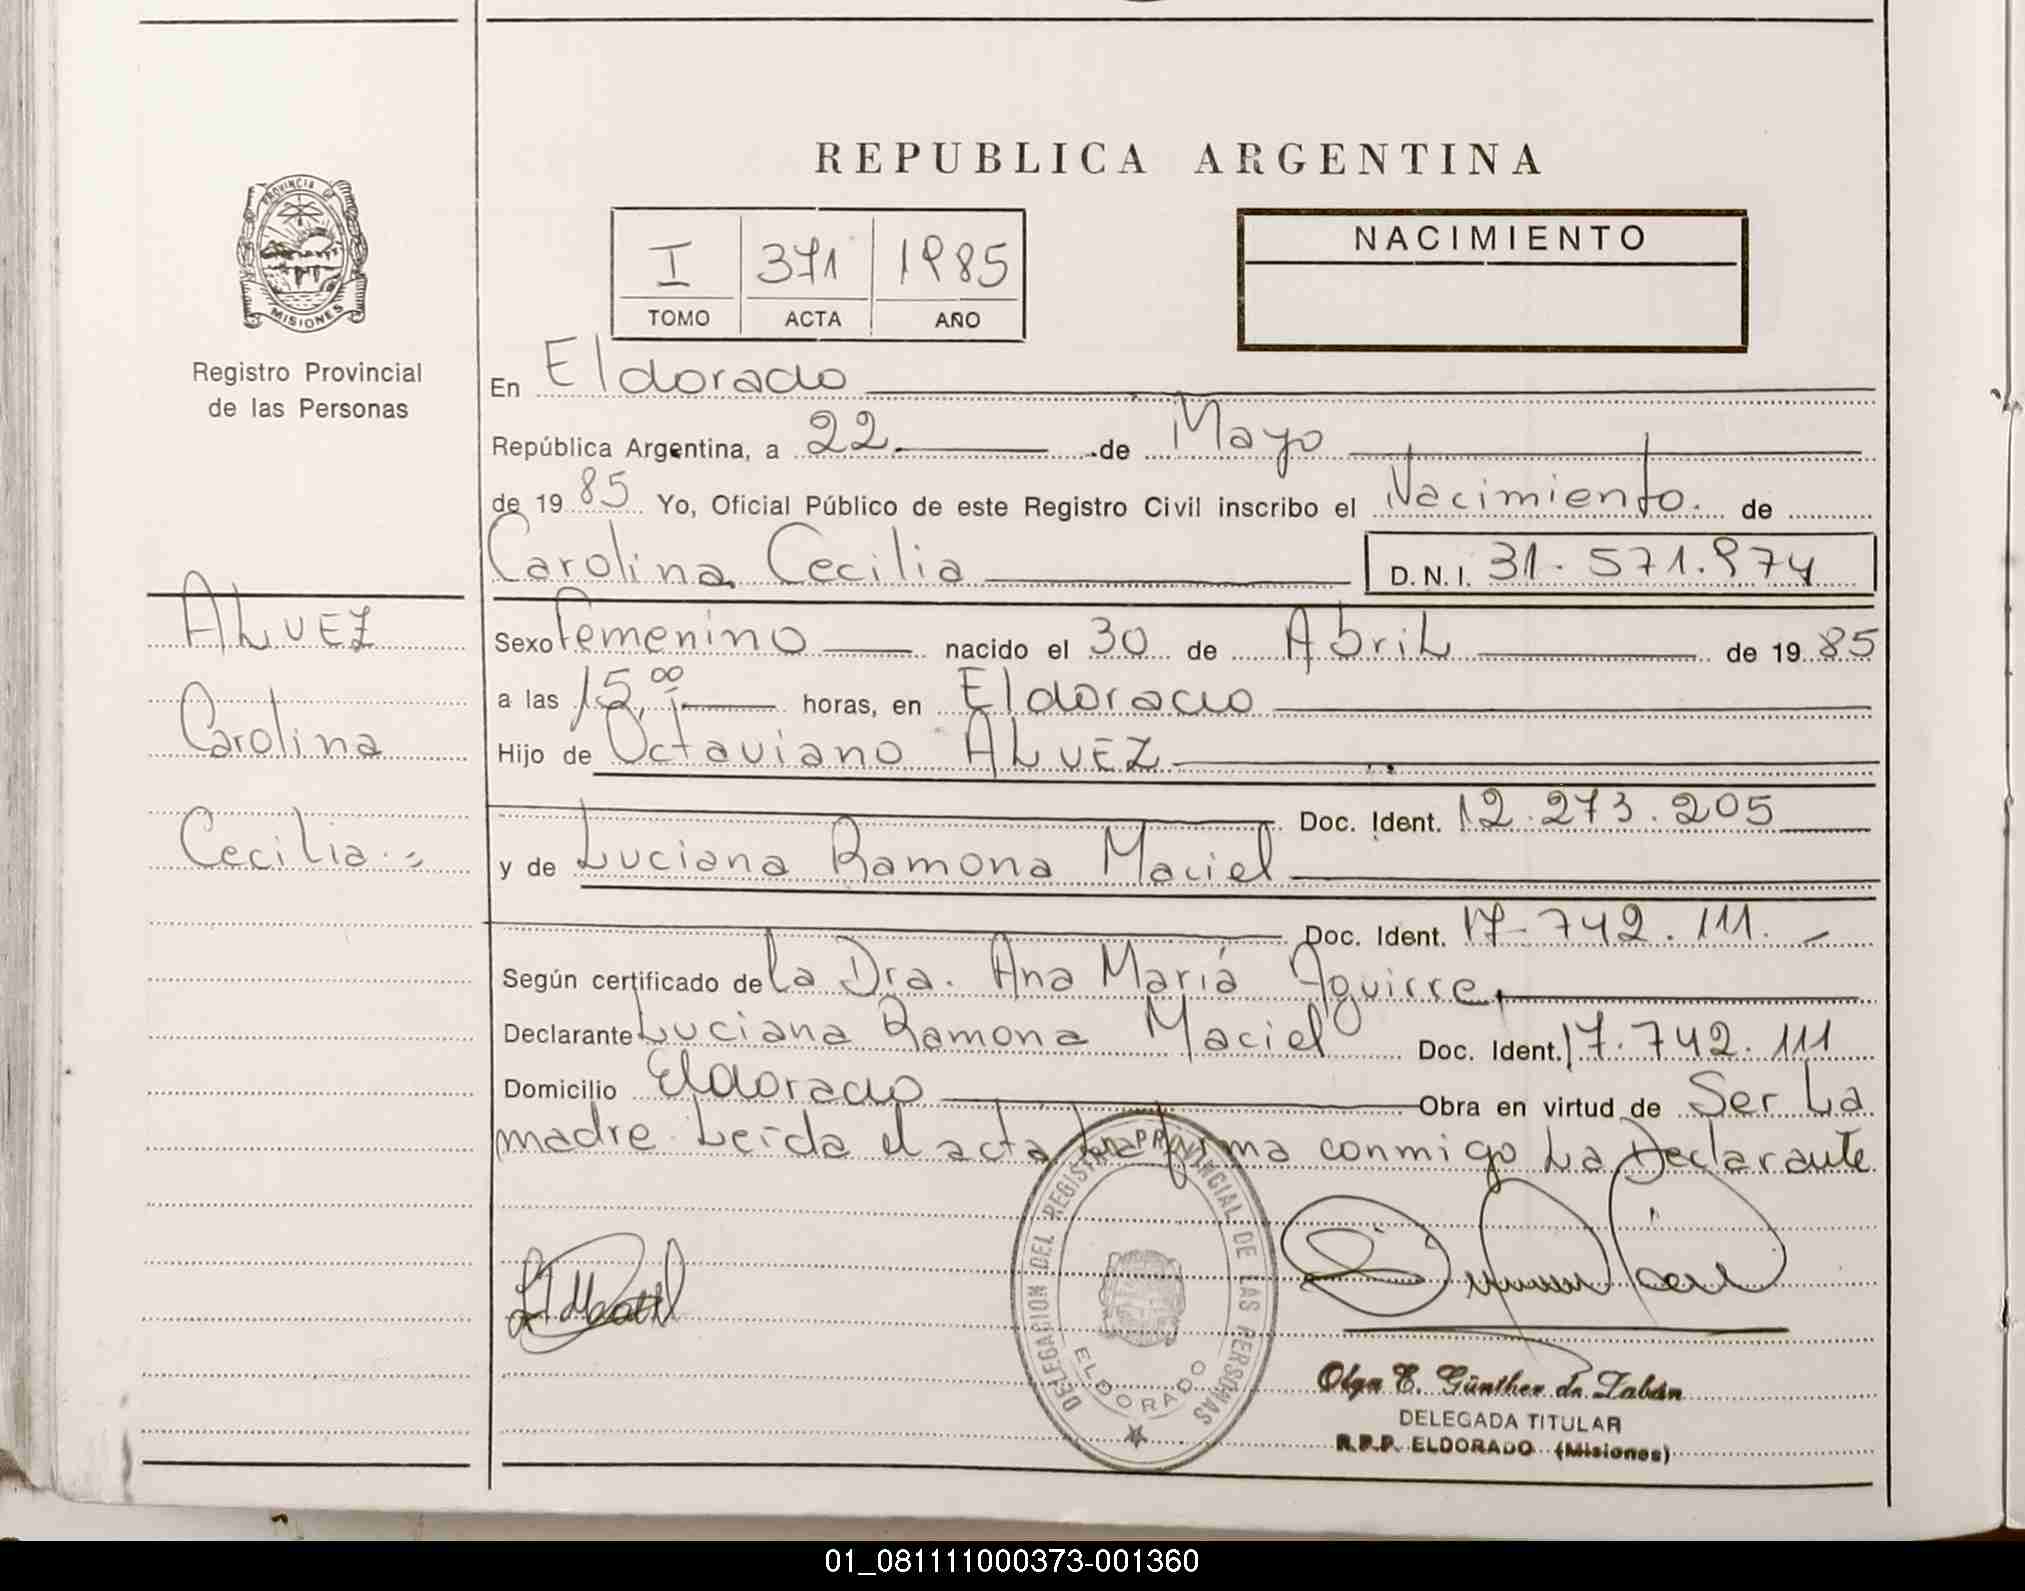 PROVINCIA DE
MISIONES
Registro Provincial
de las Personas
ALVEZ
Carolina
Cecilia.=
REPUBLICA ARGENTINA
I 371 1985
TOMO ACTA AÑO
NACIMIENTO
En Eldorado
República Argentina, a 22 de Mayo
de 1985 Yo, Oficial Público de este Registro Civil inscribo el Nacimiento. de
Carolina Cecilia D.N.I. 31.571.974
Sexo Femenino nacido el 30 de Abril de 1985
a las 15,00 horas, en Eldorado
Hijo de Octaviano ALVEZ
Doc. Ident. 12.273.205
y de Luciana Ramona Maciel
Doc. Ident. 17.742.111.-
Según certificado de la Dra. Ana María Aguirre,
Declarante Luciana Ramona Maciel Doc. Ident. 17.742.111
Domicilio Eldorado Obra en virtud de Ser La
madre. Leída el acta la firma conmigo La Declarante
DELEGACION DEL REGISTRO PROVINCIAL DE LAS PERSONAS
ELDORADO
Olga E. Günther de Zabán
DELEGADA TITULAR
R.P.P. ELDORADO (Misiones)
01_081111000373-001360